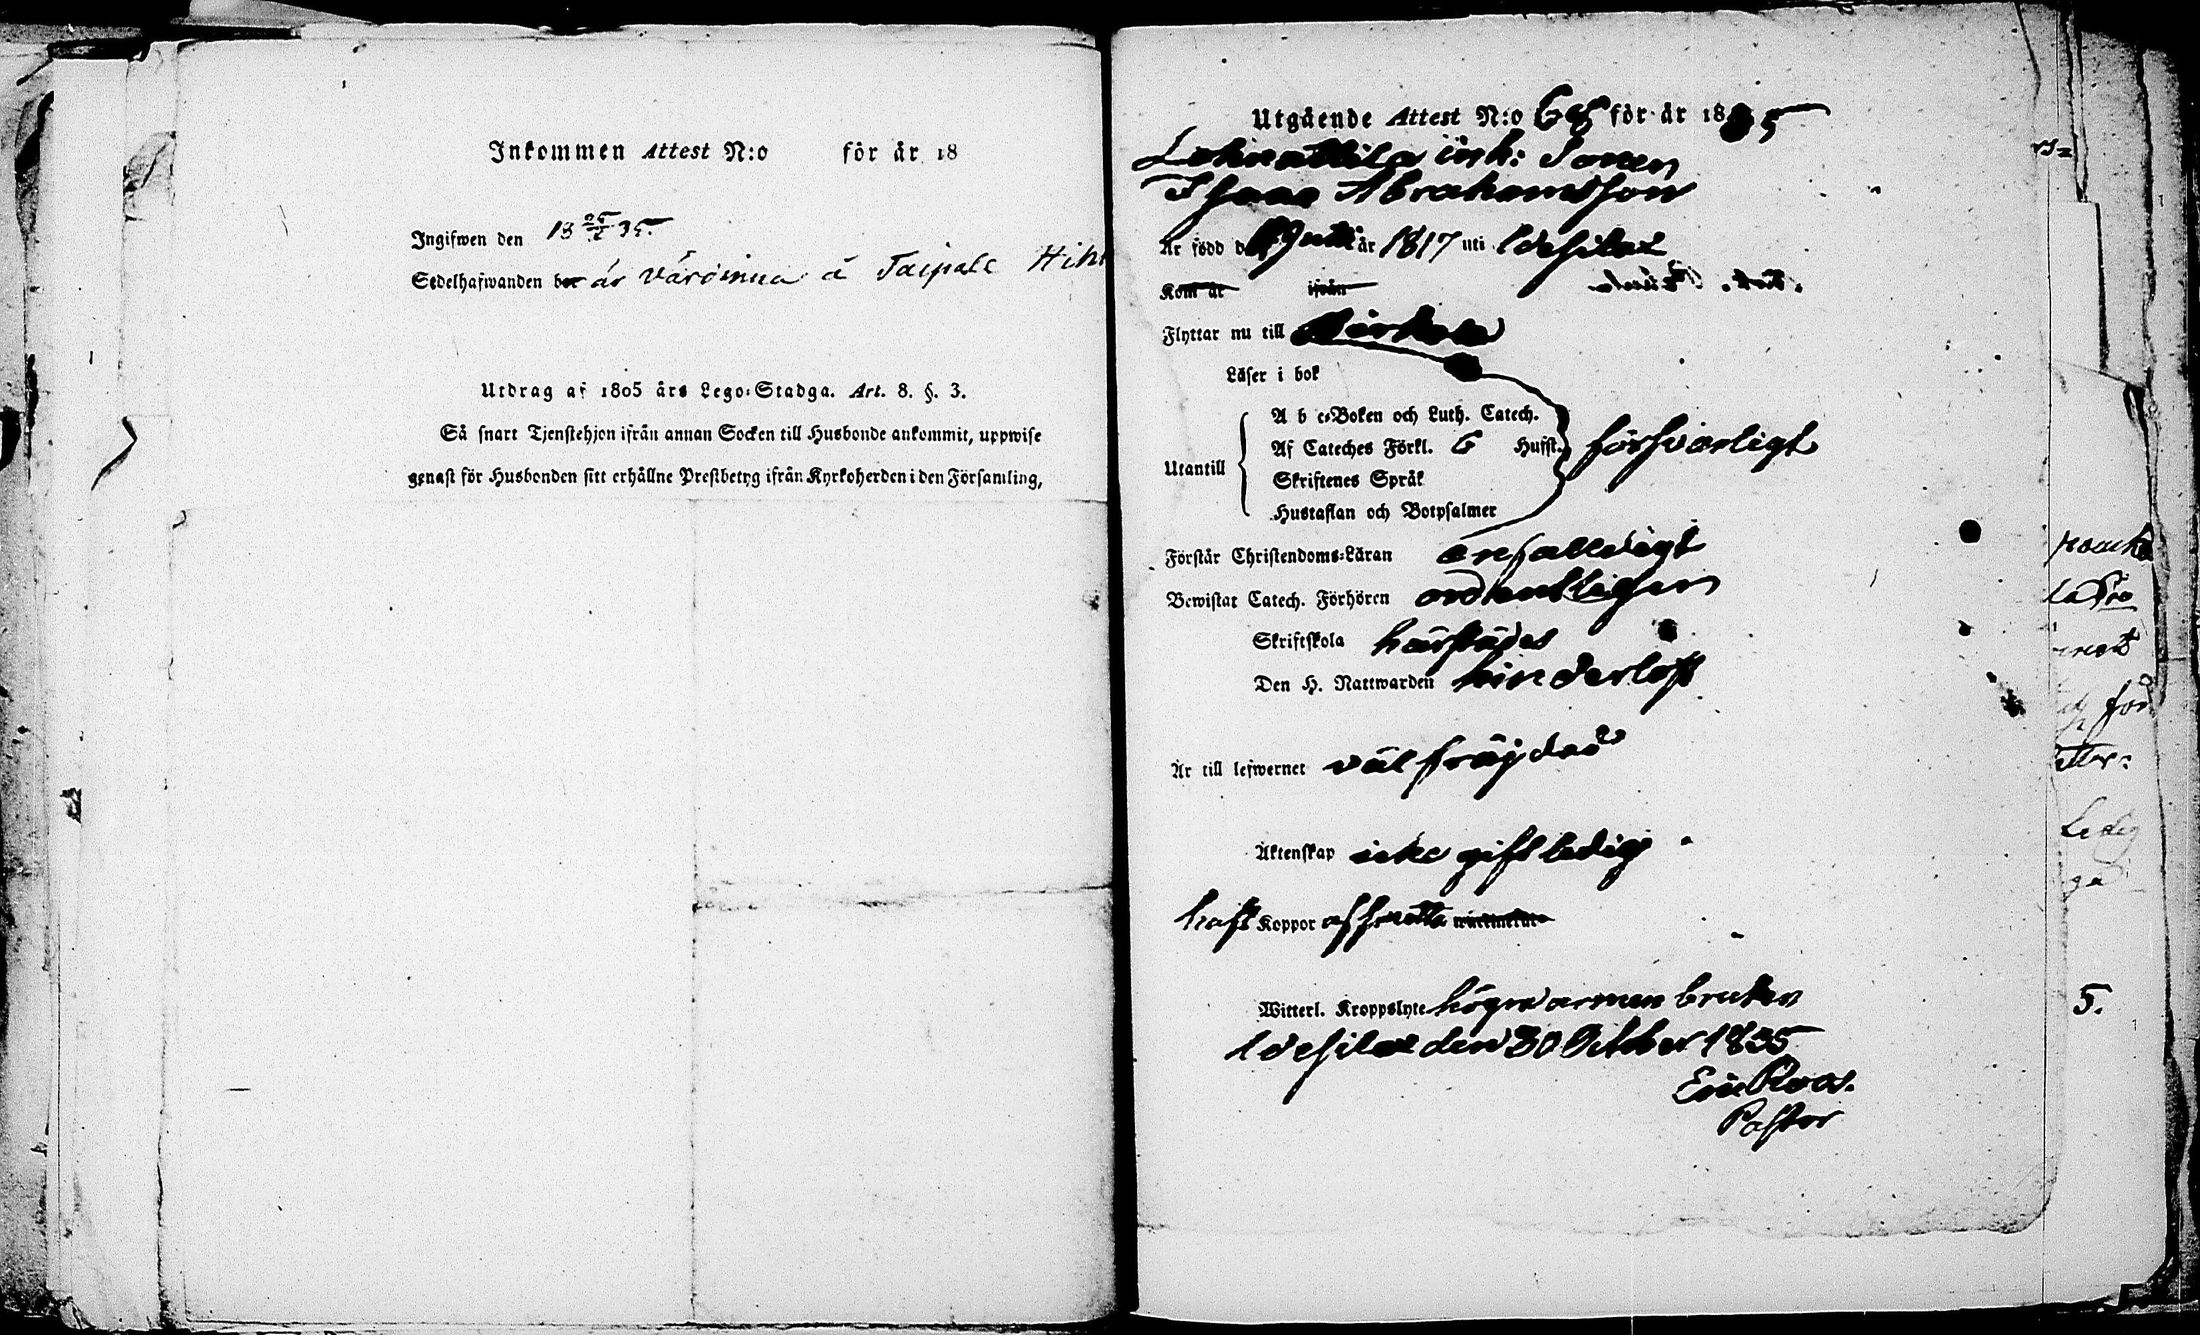 Inkommen Attest N:o för år 18
Ingifwen den 18 25/5 35.
Sedelhafwanden bor är Värdinna å Taipale
Utdrag af 1805 års Lego-Stadga. Art. 8. §. 3.
Så snart Tjenstehjon ifrån annan Socken till Husbonde ankommit, uppwise
genast för Husbonden sitt erhållne Prestbetyg ifrån Kyrkoherden i den Församling,
Utgående Attest N:o 68 för år 1835
inh: Sonen
Isaac Abrahamsson
Är född d Juli år 1817 uti Idesilax
Kom år ifrån
Flyttar nu till
Läser i bok
Utantill
A b c-Boken och Luth. Catech.
Af Cateches Förkl. 6 Hufst. försvarligt
Skriftenes Språk
Hustaflan och Botpsalmer
Förstår Christendoms-Läran enfalldigt
Bewistat Catech. Förhören ordentligen
Skriftskola härstädes
Den H. Nattwarden hinderlöst
Är till lefwernet väl fräjdad
Äktenskap icke gift ledig
haft Koppor
Witterl. Kroppslyte högra armen bruten
Idesilax den 30 October 1835
Eric Roos.
Pastor
5.